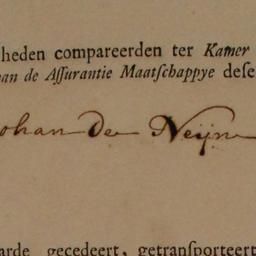 heden compareerden ter Kamer
van de Aſſurantie Maatſchappye deſe
Johan de Neijn
arde gecedeert, getranſporteert